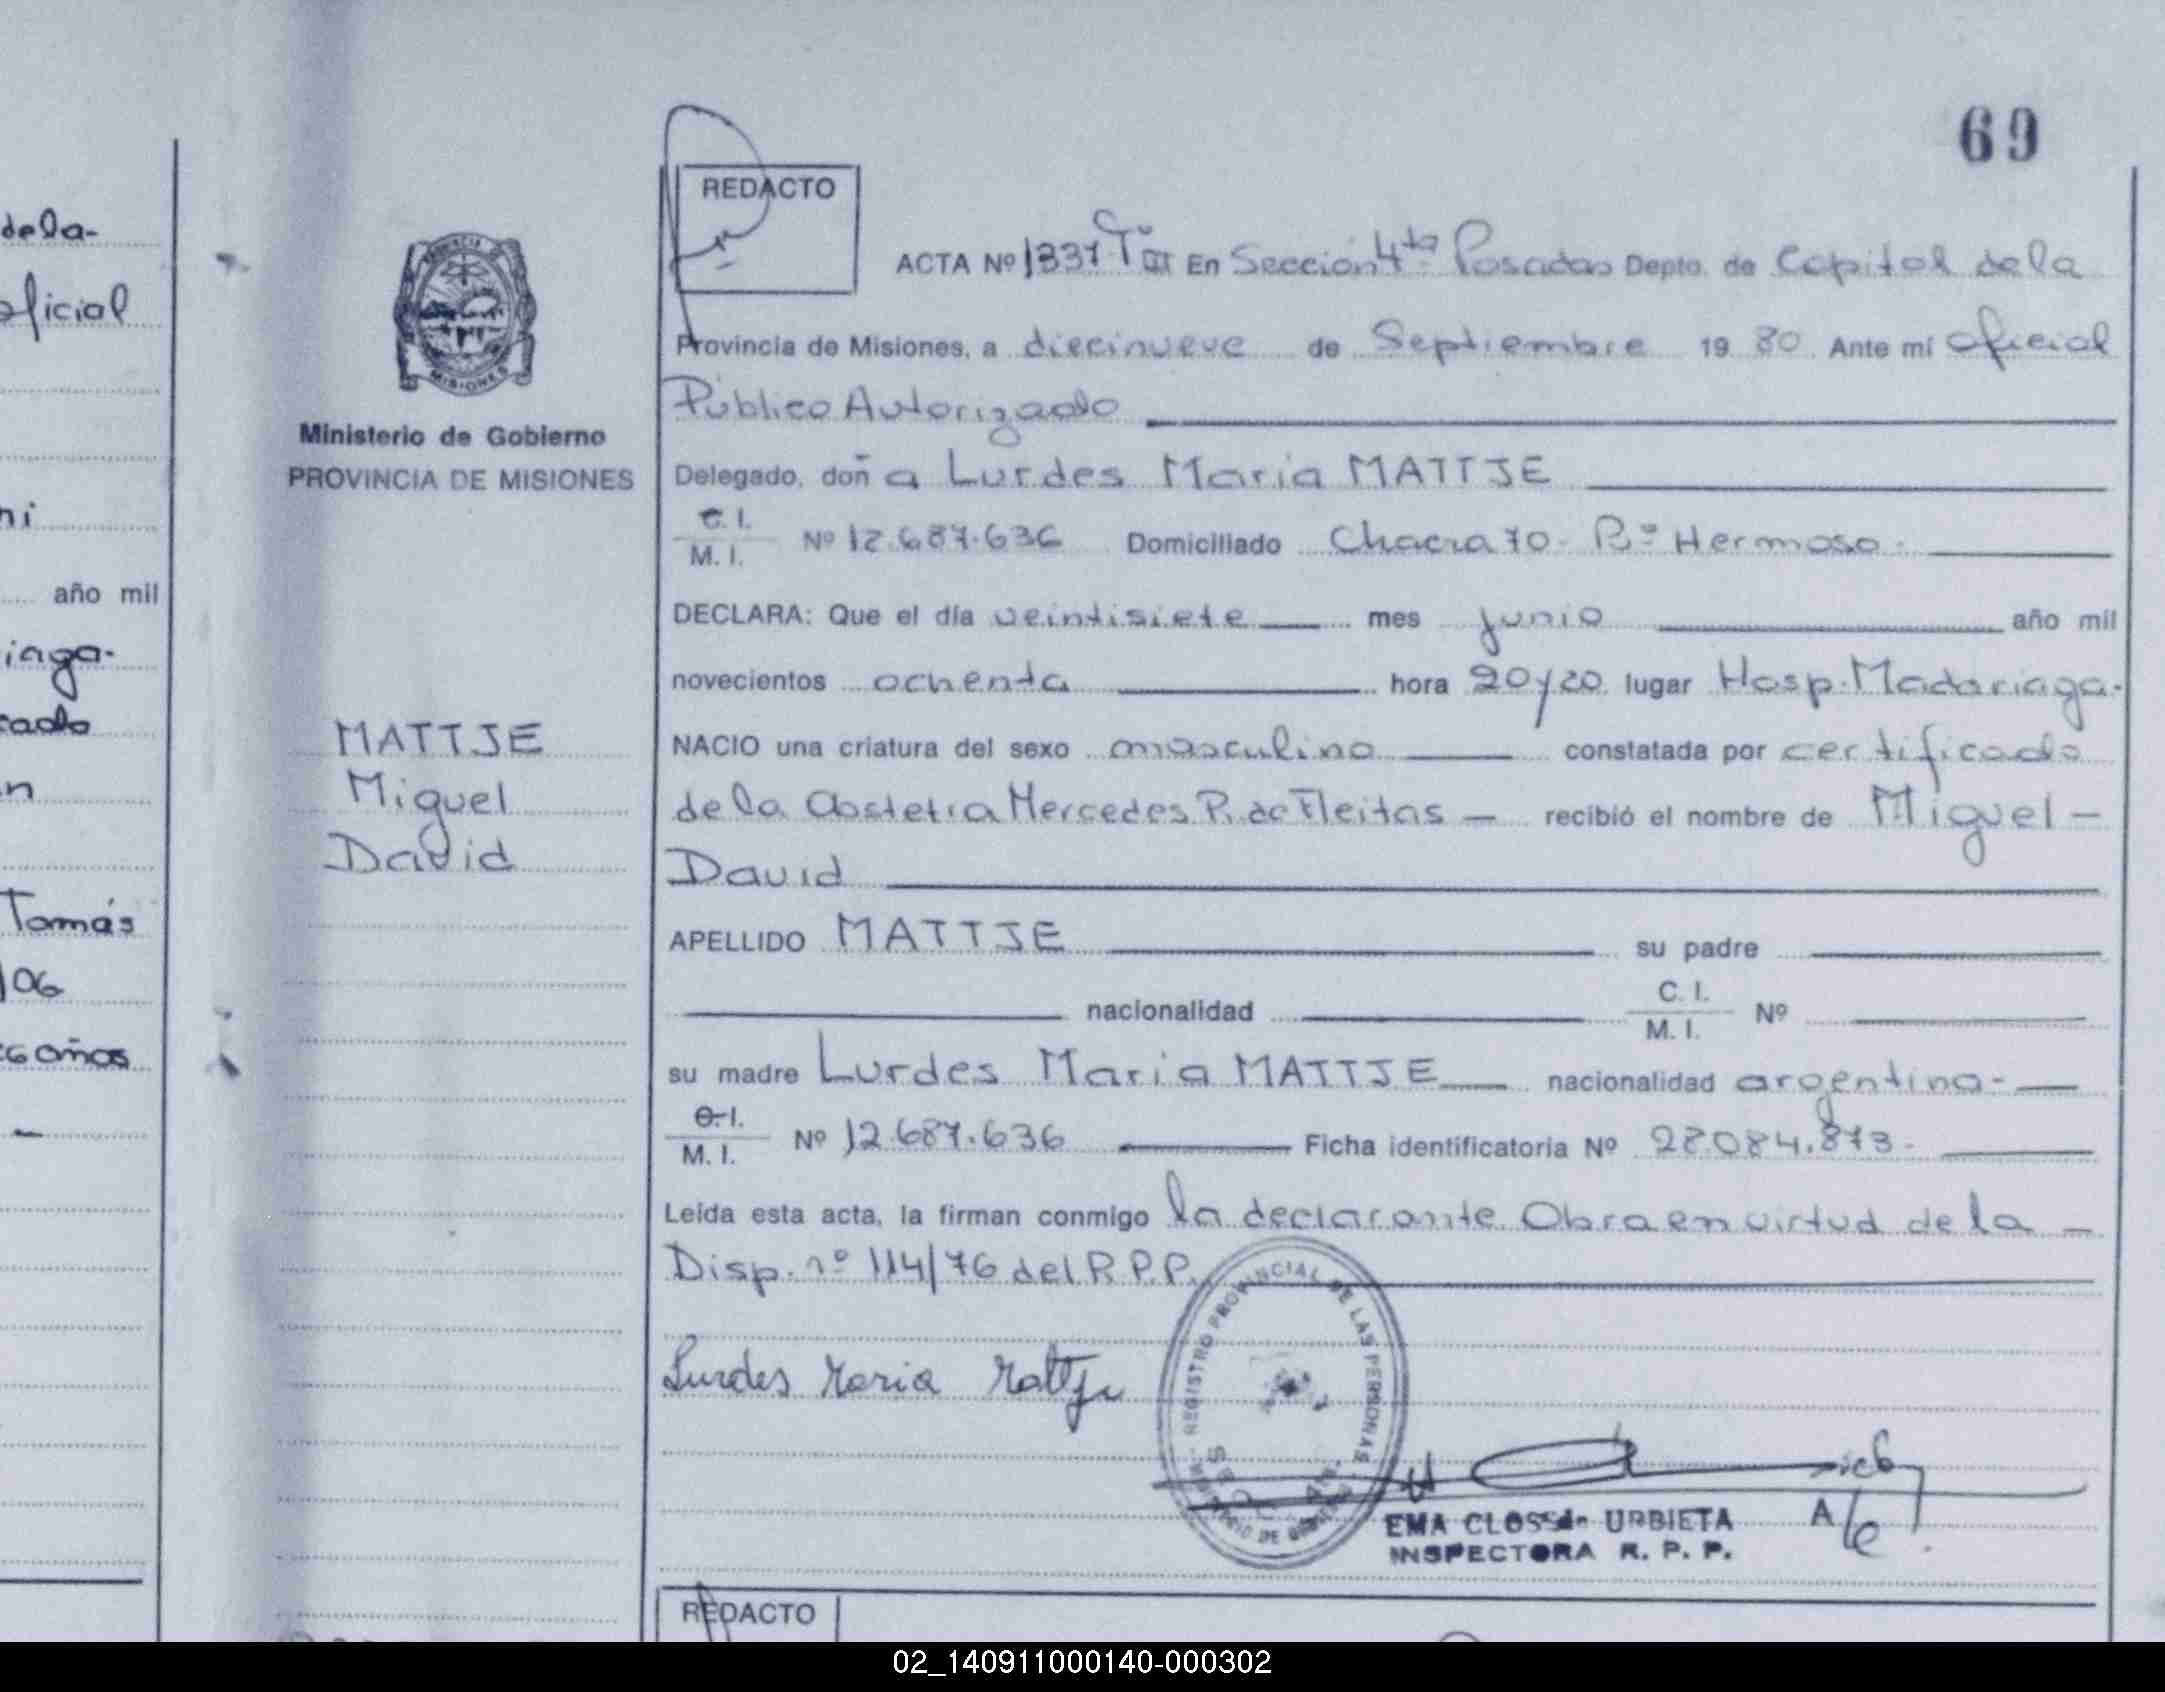 69
dela-
oficial
ni
año mil
iaga.
cado
n
Tomás
106
26 años
PROVINCIA DE
MISIONES
Ministerio de Gobierno
PROVINCIA DE MISIONES
MATTJE
Miguel
David
REDACTO
ACTA Nº 1337 Tº III En Sección 4ta Posadas Depto. de Capital de la
Provincia de Misiones, a diecinueve de Septiembre 19 80 Ante mí oficial
Público Autorizado
Delegado, doñ a Lurdes Maria MATTJE
C. I.
M. I. Nº 12.687.636 Domiciliado Chacra 70- Bº Hermoso.
DECLARA: Que el día veintisiete mes junio año mil
novecientos ochenta hora 20y20 lugar Hosp. Madariaga.
NACIO una criatura del sexo masculino constatada por certificado
de la Obstetra Mercedes R. de Fleitas — recibió el nombre de Miguel —
David
APELLIDO MATTJE su padre
nacionalidad C. I.
M. I. Nº
su madre Lurdes Maria MATTJE nacionalidad argentina-
C. I.
M. I. Nº 12.687.636 Ficha identificatoria Nº 28.084.873.
Leída esta acta, la firman conmigo la declarante Obra en virtud de la —
Disp. nº 114/76 del R.P.P.
REGISTRO PROVINCIAL DE LAS PERSONAS
Lurdes Maria Mattje
EMA CLOSS de URBIETA
INSPECTORA R. P. P.
A/c.
REDACTO
02_140911000140-000302